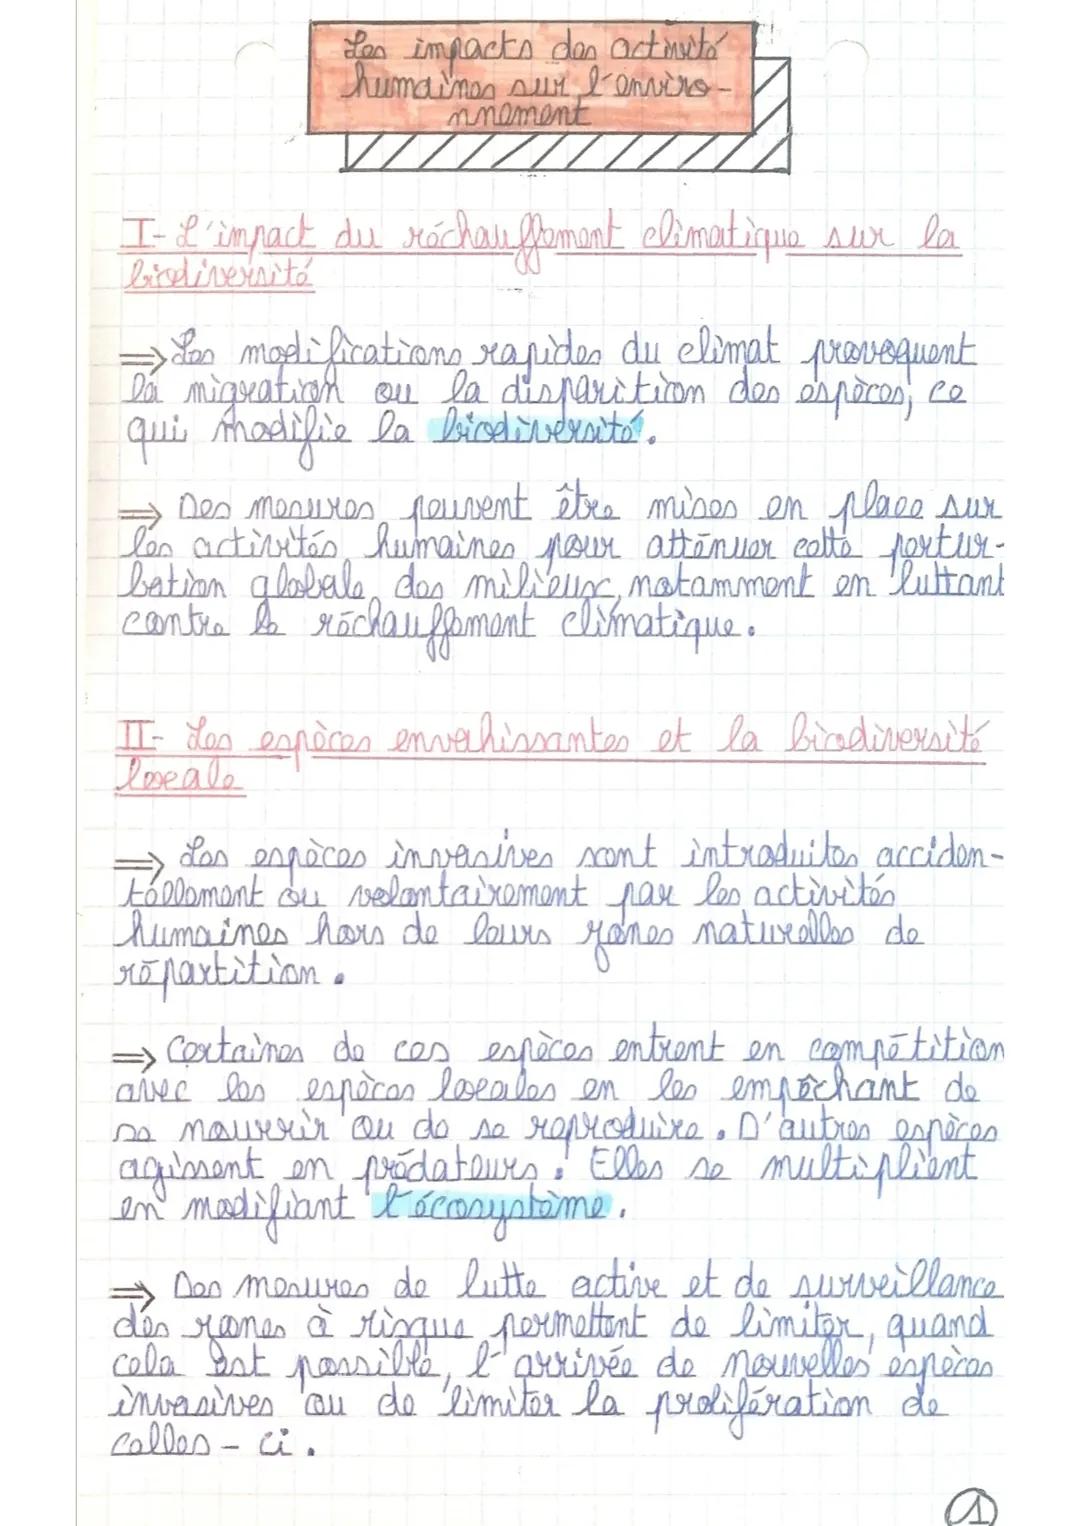 Les impacts des activité
humaines sur l'enviro-
nnement
I- L'impact du réchauffement climatique sur la
biodiversité
⇒ Les modifications rapides du climat provoquent
la migration ou la disparition des espèces, ce
qui modifie la biodiversité.
⇒ Des mesures peuvent être mises en place sur
les activités humaines pour atténuer cette pertur-
bation globale des milieux, notamment en luttant
contre le réchauffement climatique.
II- Les espèces envahissantes et la biodiversité
locale
⇒ Les espèces invasives sont introduites acciden-
tellement ou volontairement par les activités
humaines hors de leurs zones naturelles de
répartition.
⇒ Certaines de ces espèces entrent en compétition
avec les espèces locales en les empêchant de
se nourrir ou de se reproduire. D'autres espèces
agissent en prédateurs. Elles se multiplient
en modifiant l'écosystème.
⇒ Des mesures de lutte active et de surveillance
des zones à risque permettent de limiter, quand
cela est possible, l'arrivée de nouvelles espèces
invasives ou de limiter la prolifération de
celles-ci.
1